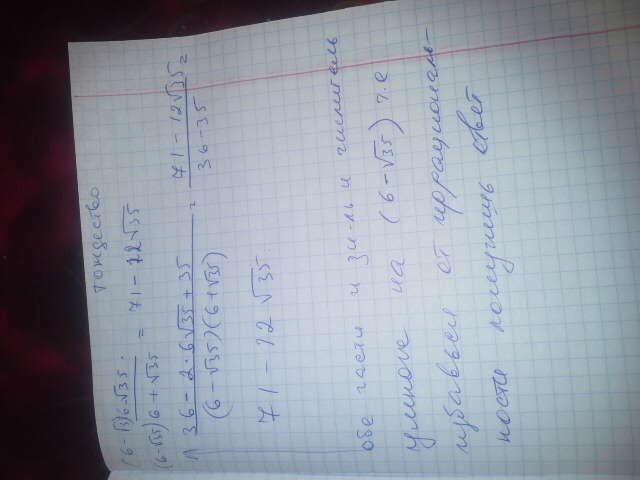 тождество
(6-√3)6-√35. / (6-√35)6+√35 = 71-12√35
36-2·6√35+35 / (6-√35)(6+√35) = 71-12√35 / 36-35 =
71-12√35
обе части и зн-ль и числитель
умножь на (6-√35) т.е
избавься от иррациональ-
ности получишь ответ